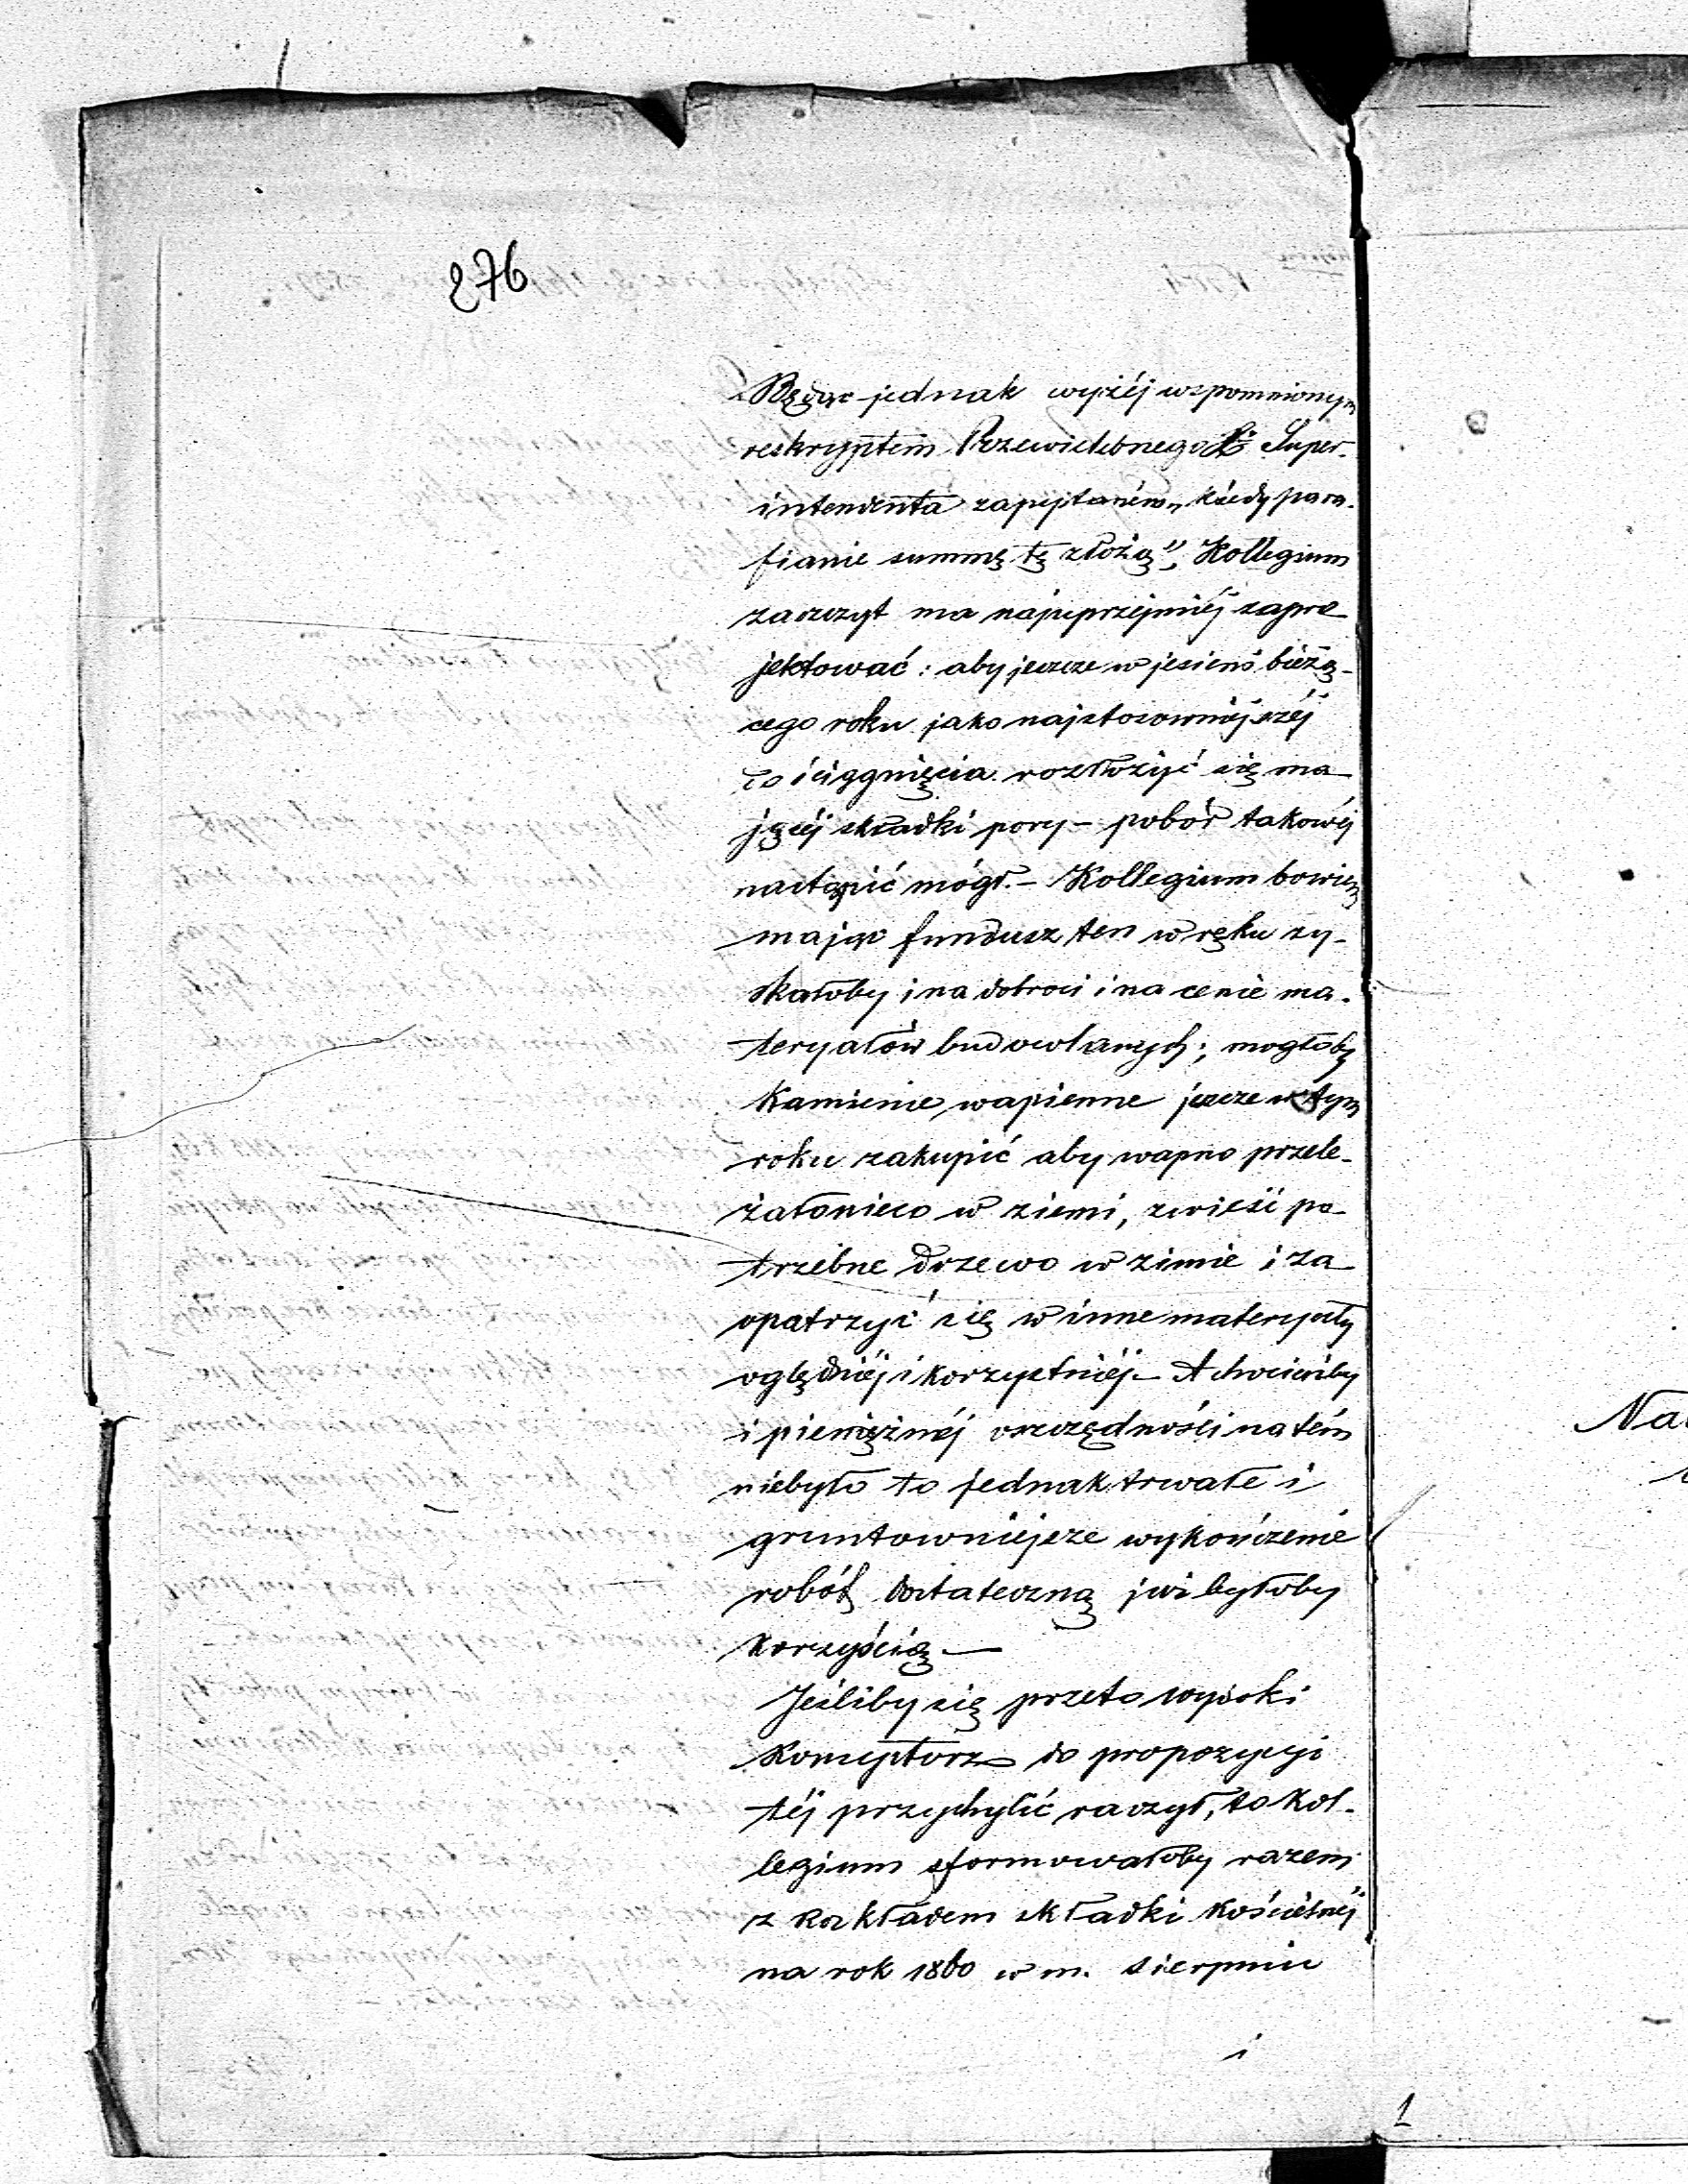 276
Będąc jednak wyżéj wspomnionym
reskryptem Przewielebnego X. Super-
intendenta zapytaném „kiedy para-
fianie summę tę złożą”, Kollegium
zaszczyt ma najuprzejmiéj zapro
jektować: aby jeszcze w jesieni bieżą-
cego roku jako najstosowniéjszéj
do ściągnięcia rozłożyć się ma
jącéj składki pory – pobór takowéj
nastąpić mógł. – Kollegium bowiem
mając fundusz ten w ręku zy-
skałoby i na dobroci i na cenie ma-
teryałów budowlanych; mogłoby
kamienie wapienne jeszcze w tym
roku zakupić aby wapno przele-
żało nieco w ziemi, zwieść po-
trzebne drzewo w zimie i za
opatrzyć się w inne materyały
oględniéj i korzystniéj – A chociażby
i pieniężnéj oszczędności na tém
niebyło to jednak trwałe i
gruntowniejsze wykończenie
robót dostateczną już byłoby
korzyścią. —
Jeśliby się przeto wysoki
Konsystorz do propozycyi
téj przychylić raczył, to Kol-
legium sformowałoby razem
z rozkładem składki kościelnéj
na rok 1860 w m. Sierpniu
i
1